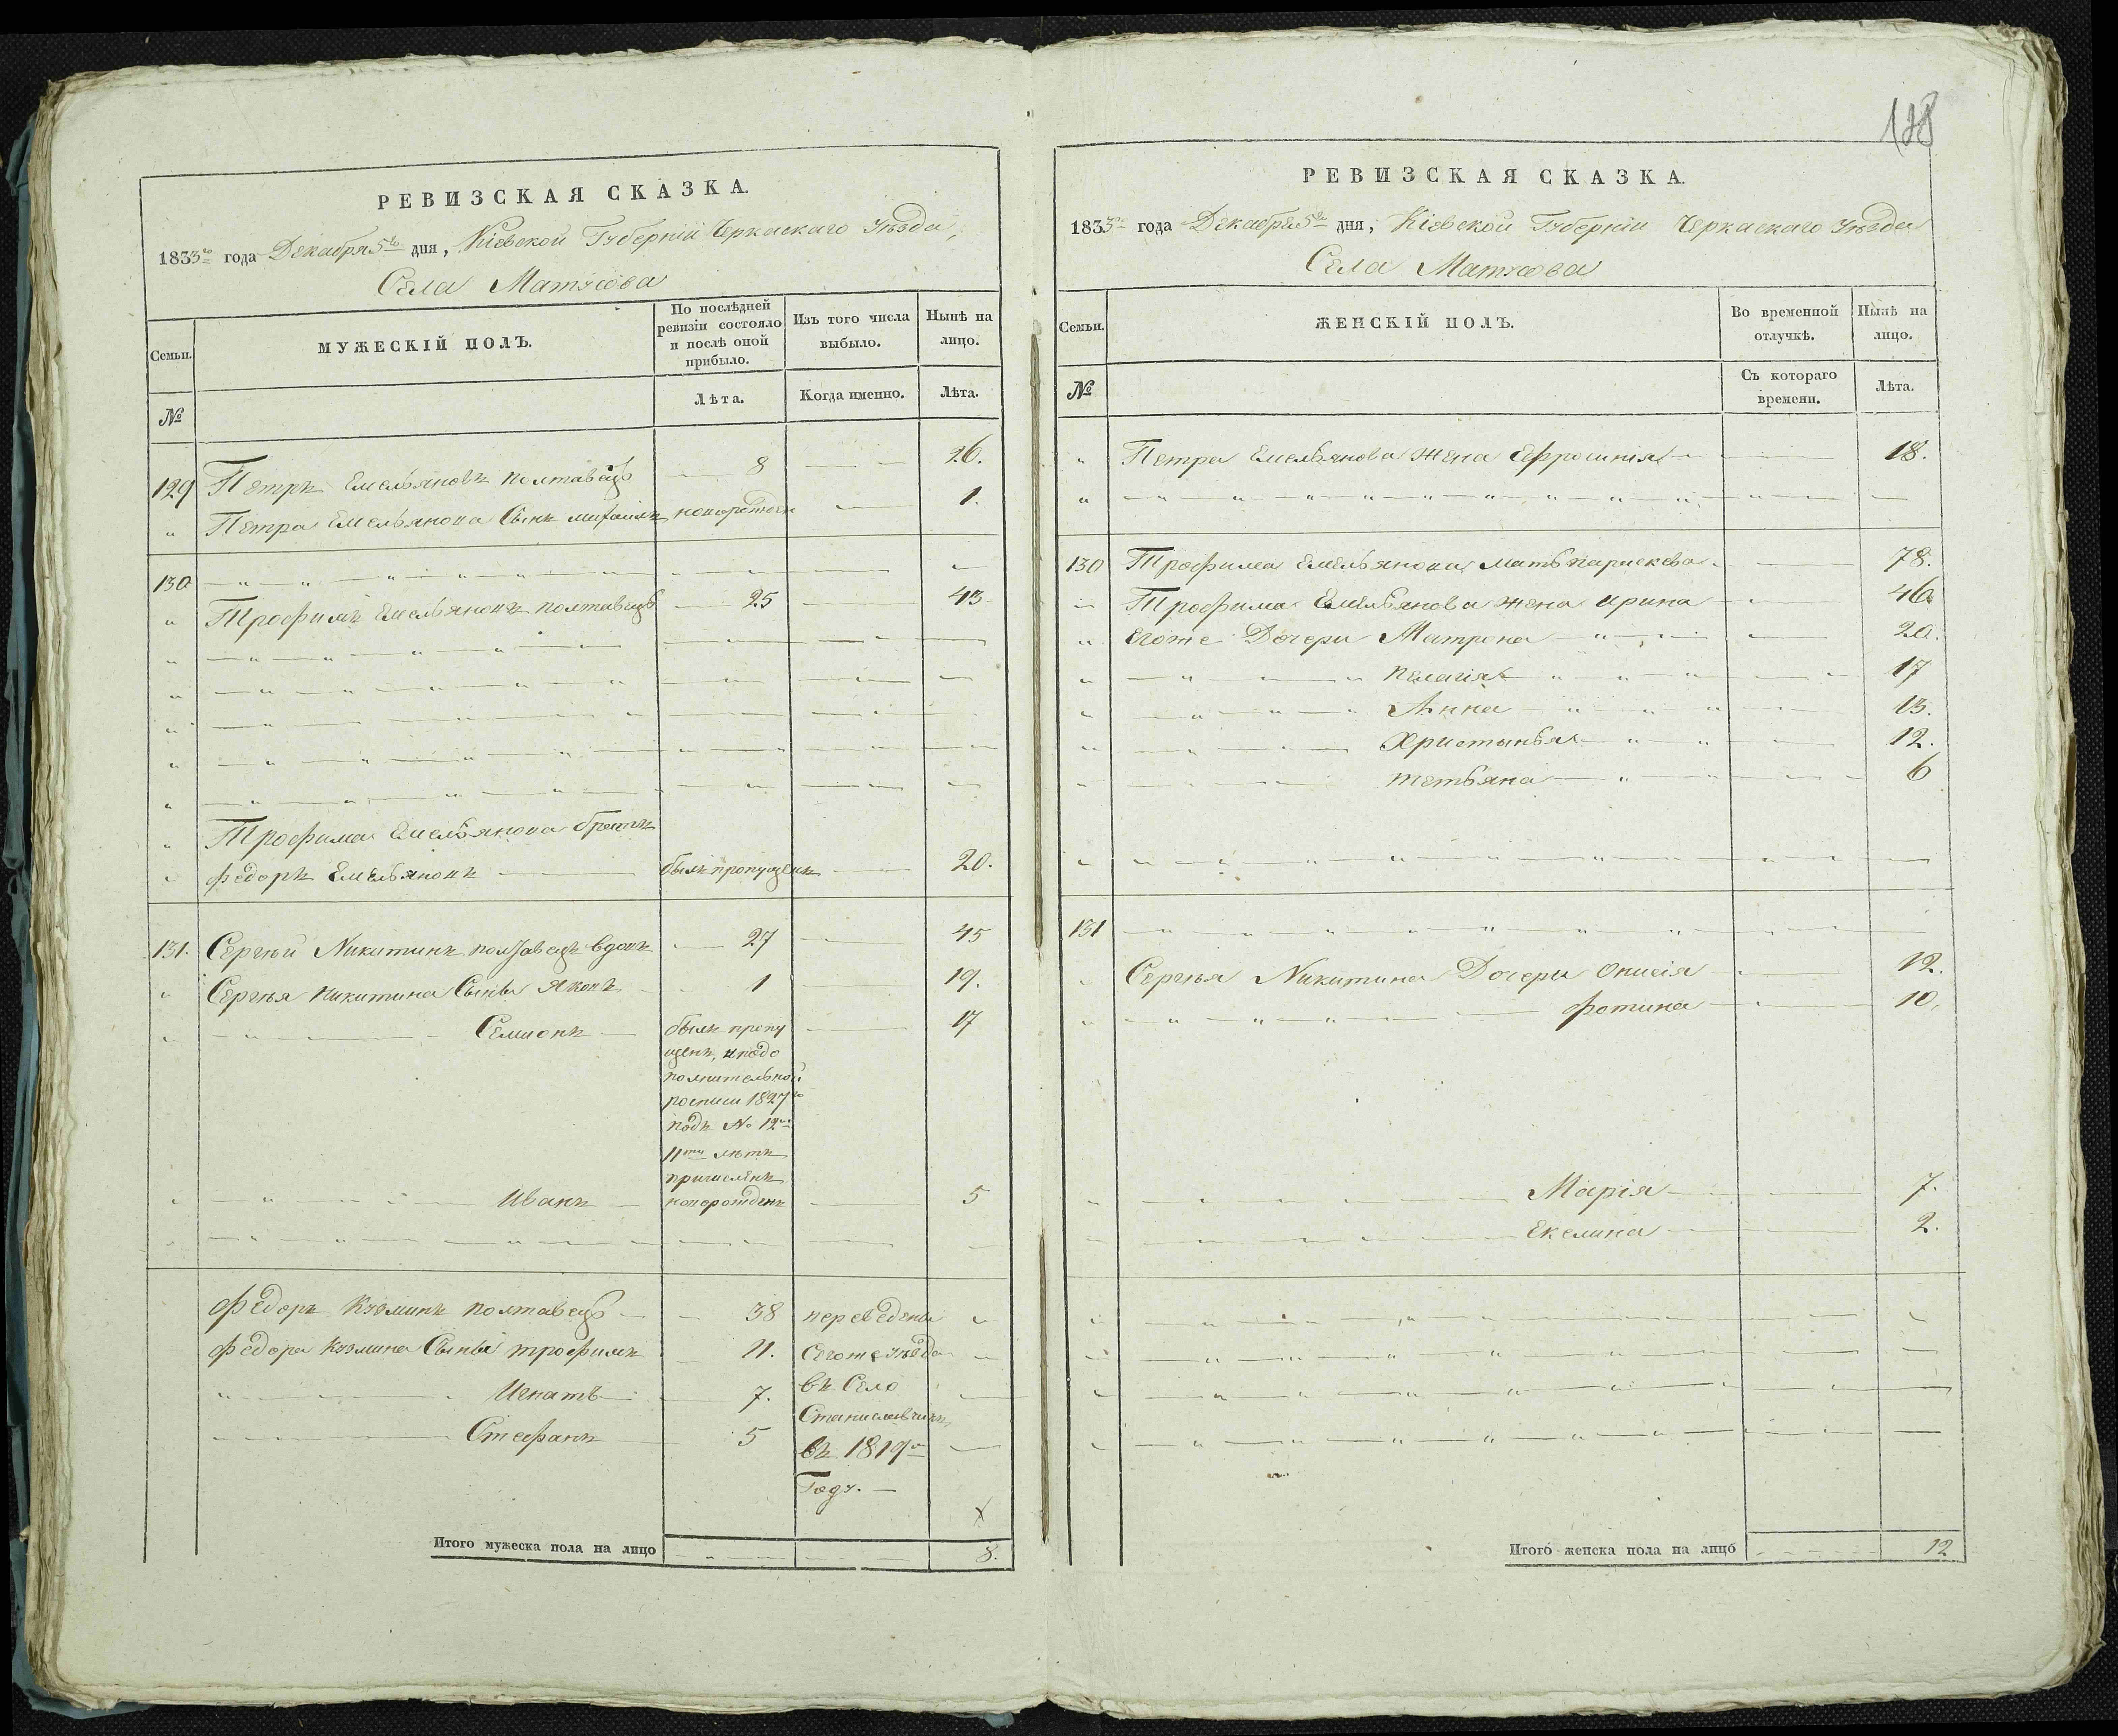 РЕВИЗСКАЯ СКАЗКА.
1833го года Декабря 5го дня, Кіевской Губерніи Черкаскаго Уѣзда,
Села Матусова
Семьи.
МУЖЕСКІЙ ПОЛЪ.
По послѣдней ревизіи состояло и послѣ оной прибыло.
Изъ того числа выбыло.
Нынѣ на лицо.
№
Лѣта.
Когда именно.
Лѣта.
129 Петръ Емельяновъ Полтавецъ 8 26.
" Петра Емельянова Сынъ Михаилъ новорожден 1.
130
" Трофимъ Емельяновъ полтавецъ 25 43
" Трофима Емельянова братъ
" Федоръ Емельяновъ былъ пропущенъ 20.
131. Сергѣй Никитинъ полтавецъ вдовъ 27 45
" Сергѣя Никитина Сынъ Яковъ 1 19.
" Семионъ былъ пропу 17
щенъ, и подо
полнительной
росписи 1827го
подъ № 12
11ти лѣтъ
причисленъ
" Иванъ новорожденъ 5
Федоръ Кузминъ полтавецъ 38 переведены
Федора Кузмина Сыны трофимъ 11. Сегоже уѣзда
" Игнатъ 7. въ Село
Станиславчикъ,
Стефанъ 5 въ 1819
Году.
х
Итого мужеска пола на лицо 8.
188
РЕВИЗСКАЯ СКАЗКА.
1833го года Декабря 5го дня, Кіевской Губерніи Черкаскаго Уѣзда
Села Матусова
Семьи.
ЖЕНСКІЙ ПОЛЪ.
Во временной отлучкѣ.
Нынѣ на лицо.
№
Съ котораго времени.
Лѣта.
" Петра Емельянова жена Ефросинія 18.
130 Трофима Емельянова мать параскева 78.
" Трофима Емельянова жена ирина 46
" Егоже Дочери Матрона 20.
" пелагія 17
" Анна 13.
" Христинья 12.
" тетьяна 6
131
" Сергѣя Никитина Дочери Онисія 12.
" фотина 10.
" Марія 7.
" Екелина 2.
Итого женска пола на лицо 12